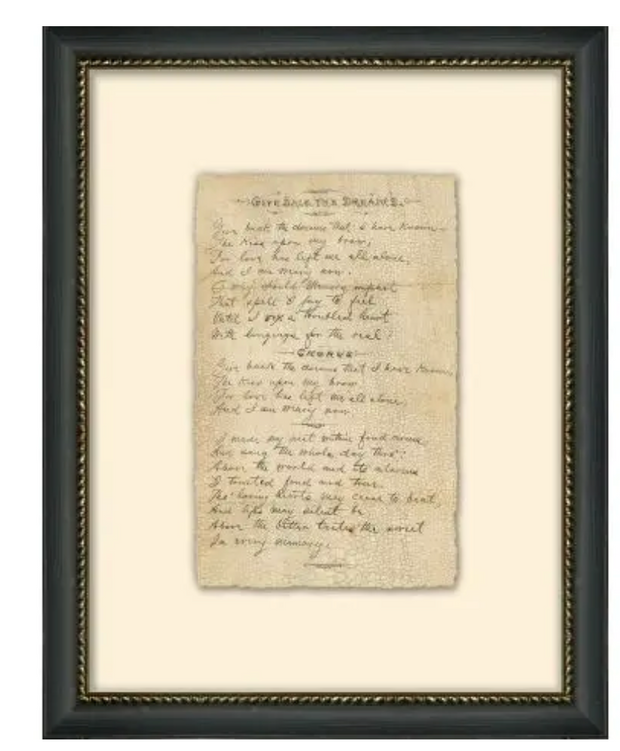 Give Back The Dreams.
Give back the dreams that I have known
The kiss upon my brow,
For love has left me all alone,
And I am weary now.
O why should Memory impart
That spell I pay to feel
Until I a troubled heart
With longings for the real
Chorus
Give back the dreams that I have known
The kiss upon my brow
For love has left me all alone,
And I am weary now
I made my nest within fond
And sang the whole day thro'
Above the world and its alarms
I trusted fond and true.
Tho' loving hearts may cease to beat,
And lips may silent be
Above the the sweet
In every memory.